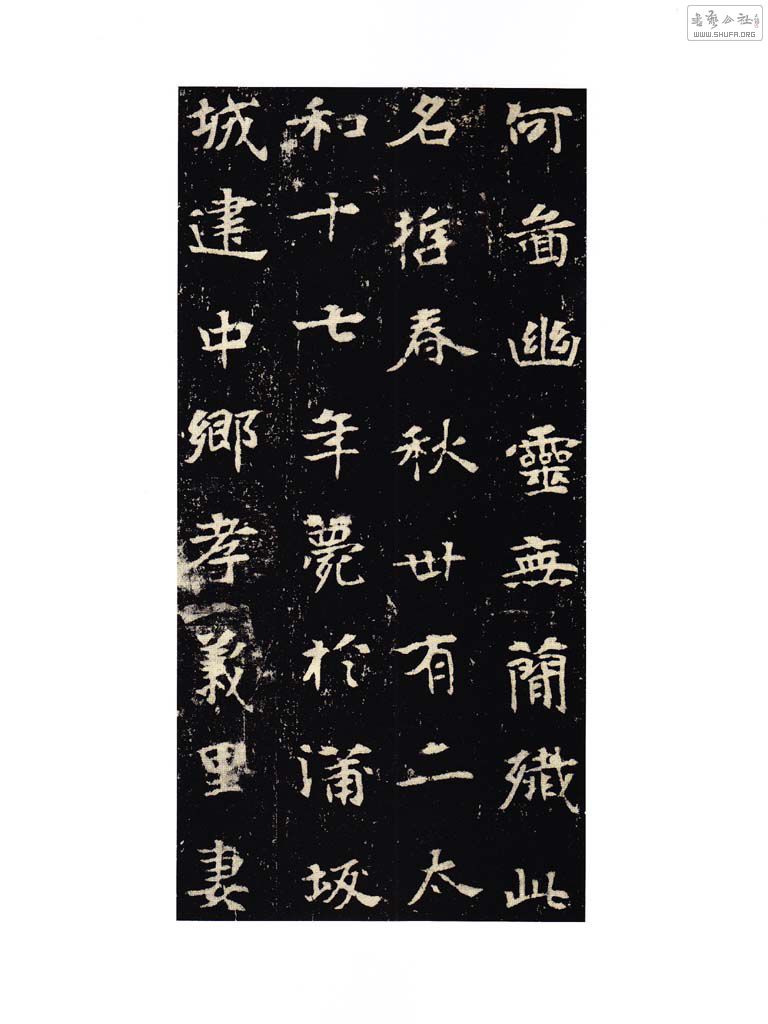 何啚幽靈無簡殱此
名哲春秋卅有二太
和十七年薨於蒲坂
城建中鄉孝義里妻
書藝公社
WWW.SHUFA.ORG